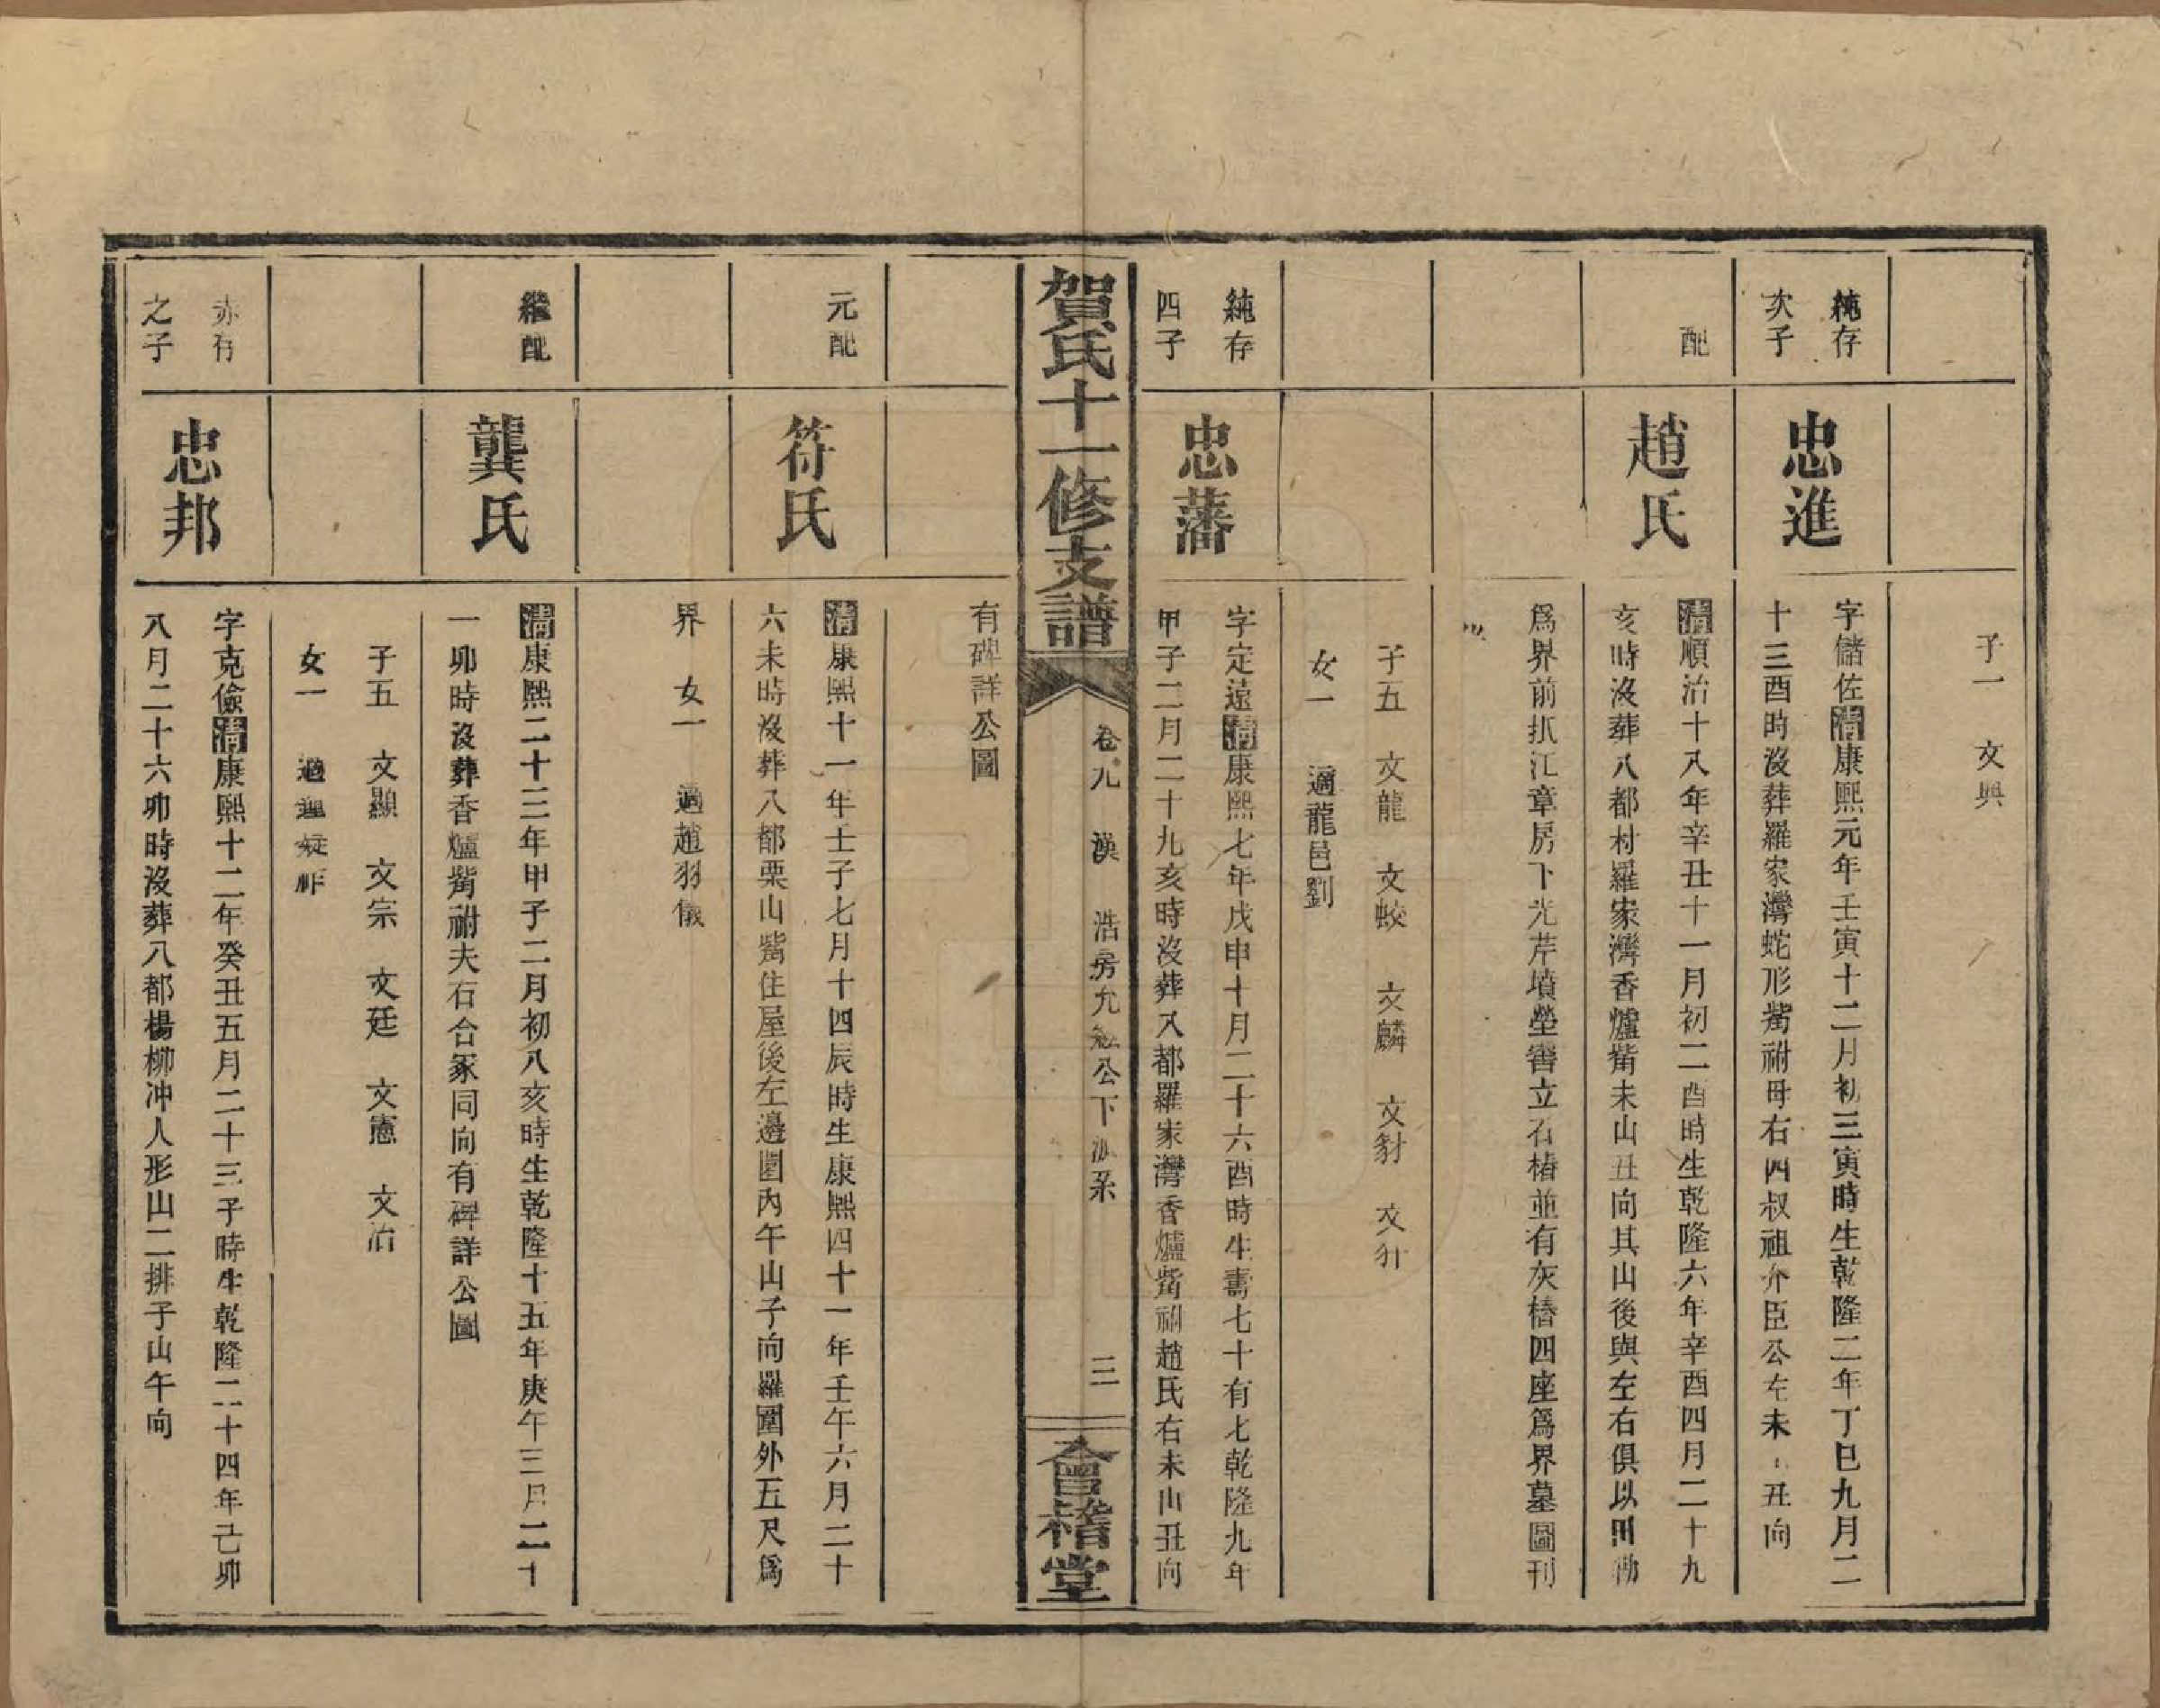 子一　文興
純存
次子
忠進
字儲佐清康熙元年壬寅十二月初三寅時生乾隆二年丁巳九月二
十三酉時沒葬羅家灣蛇形觜祔母右四叔祖介臣公左未山丑向
配
趙氏
清順治十八年辛丑十一月初二酉時生乾隆六年辛酉四月二十九
亥時沒葬八都村羅家灣香爐觜未山丑向其山後與左右俱以田坳
爲界前抓江章房下光芹墳塋窨立石樁並有灰樁四座爲界墓圖刊
子五　文龍　文蛟　文麟　文豺　文犴
女一　適龍邑劉
純存
四子
忠藩
字定遠清康熙七年戊申十月二十六酉時生壽七十有七乾隆九年
甲子二月二十九亥時沒葬八都羅家灣香爐觜祔趙氏右未山丑向
賀氏十一修支譜
卷九　漢　浩房九公下派系
三
會稽堂
有碑詳公圖
元配
符氏
清康熙十一年壬子七月十四辰時生康熙四十一年壬午六月二十
六未時沒葬八都栗山觜住屋後左邊園內午山子向羅圍外五尺爲
界　女一　適趙羽儀
繼配
龔氏
清康熙二十三年甲子二月初八亥時生乾隆十五年庚午三月二十
一卯時沒葬香爐觜祔夫石合冢同向有碑詳公圖
子五　文顯　文宗　文廷　文憲　文治
女一　適
亦存
之子
忠邦
字克儉清康熙十二年癸丑五月二十三子時生乾隆二十四年己卯
八月二十六卯時沒葬八都楊柳冲人形山二排子山午向